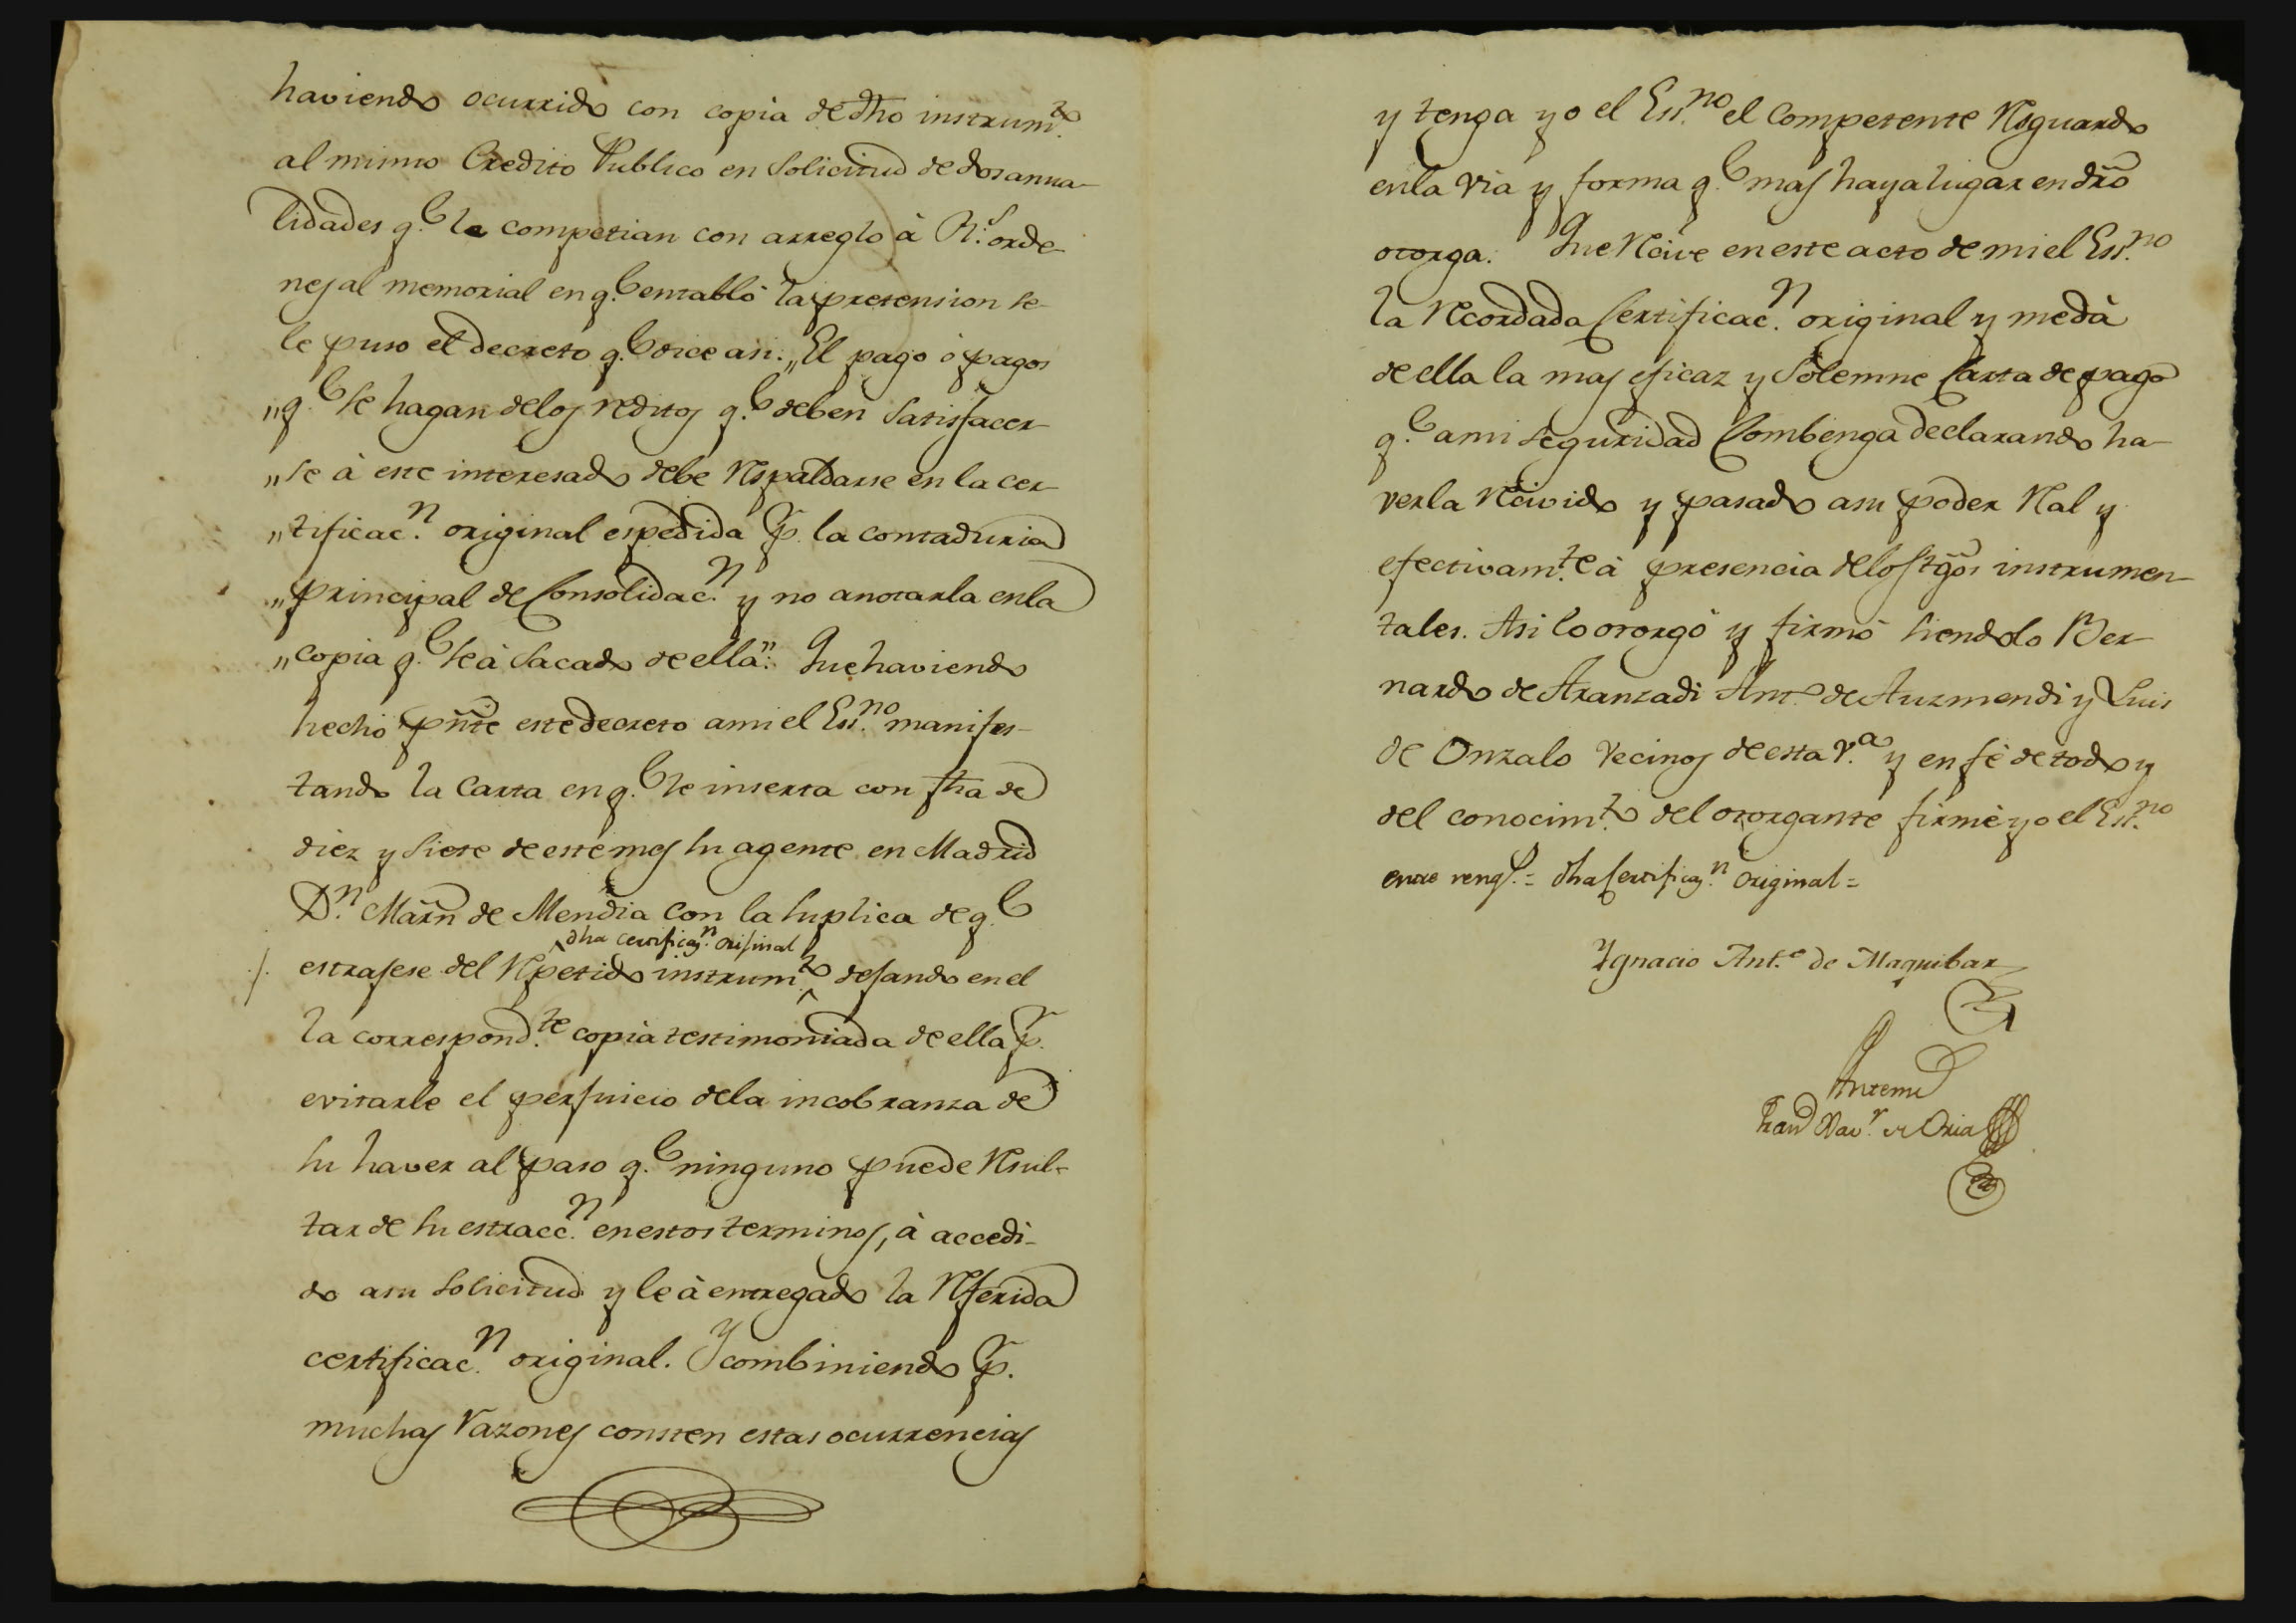 haviendo ocurrido con copia de dho instrum.to
al mismo Credito Publico en solicitud de dos anua-
lidades q.e le competian con arreglo à R.s orde-
nes al memorial en q.e entablò la pretension se
le puso el decreto q.e dice asi. „El pago ò pagos
„q.e se hagan de los reditos q.e deben satisfacer-
„se à este interesado debe respaldarse en la cer-
„tificac.n original espedida p.r la contaduria
„principal de Consolidac.n y no anotarla en la
„copia q.e se à sacado de ella„. Que haviendo
hecho pñte este decreto a mi el Ess.no manifes-
tando la Carta en q.e se inserta con fha de
diez y siete de este mes su agente en Madrid
D.n Marñ de Mendia con la suplica de q.e
dha certificaz.n orijinal
estrajese del repetido instrum.to dejando en el
la correspond.te copia testimoniada de ella p.r
evitarle el perjuicio de la incobranza de
su haver al paso q.e ninguno puede resul-
tar de su estracc.n en estos terminos, à accedi-
do a su solicitud y le à entregado la referida
certificac.n original. Y combiniendo p.r
muchas razones consten estas ocurrencias
y tenga yo el Ess.no el competente resguardo
en la via y forma q.e mas haya lugar en dro
otorga: Que recive en este acto de mi el Ess.no
la recordada Certificac.n original y me dà
de ella la mas eficaz y solemne Carta de pago
q.e a mi seguridad Combenga declarando ha-
verla recivido y pasado a su poder real y
efectivam.te à presencia de los tgõs instrumen-
tales. Asi lo otorgò y firmò siendolo Ber-
nardo de Aranzadi Ant.o de Auzmendi y Luis
de Onzalo vecinos de esta V.a y en fè de todo y
del conocim.to del otorgante firmè yo el Ess.no
entre reng.s = dha Certificaz.n original =
Ygnacio Ant.o de Maquibar
Antemi
Fran.co Xav.r de Oria